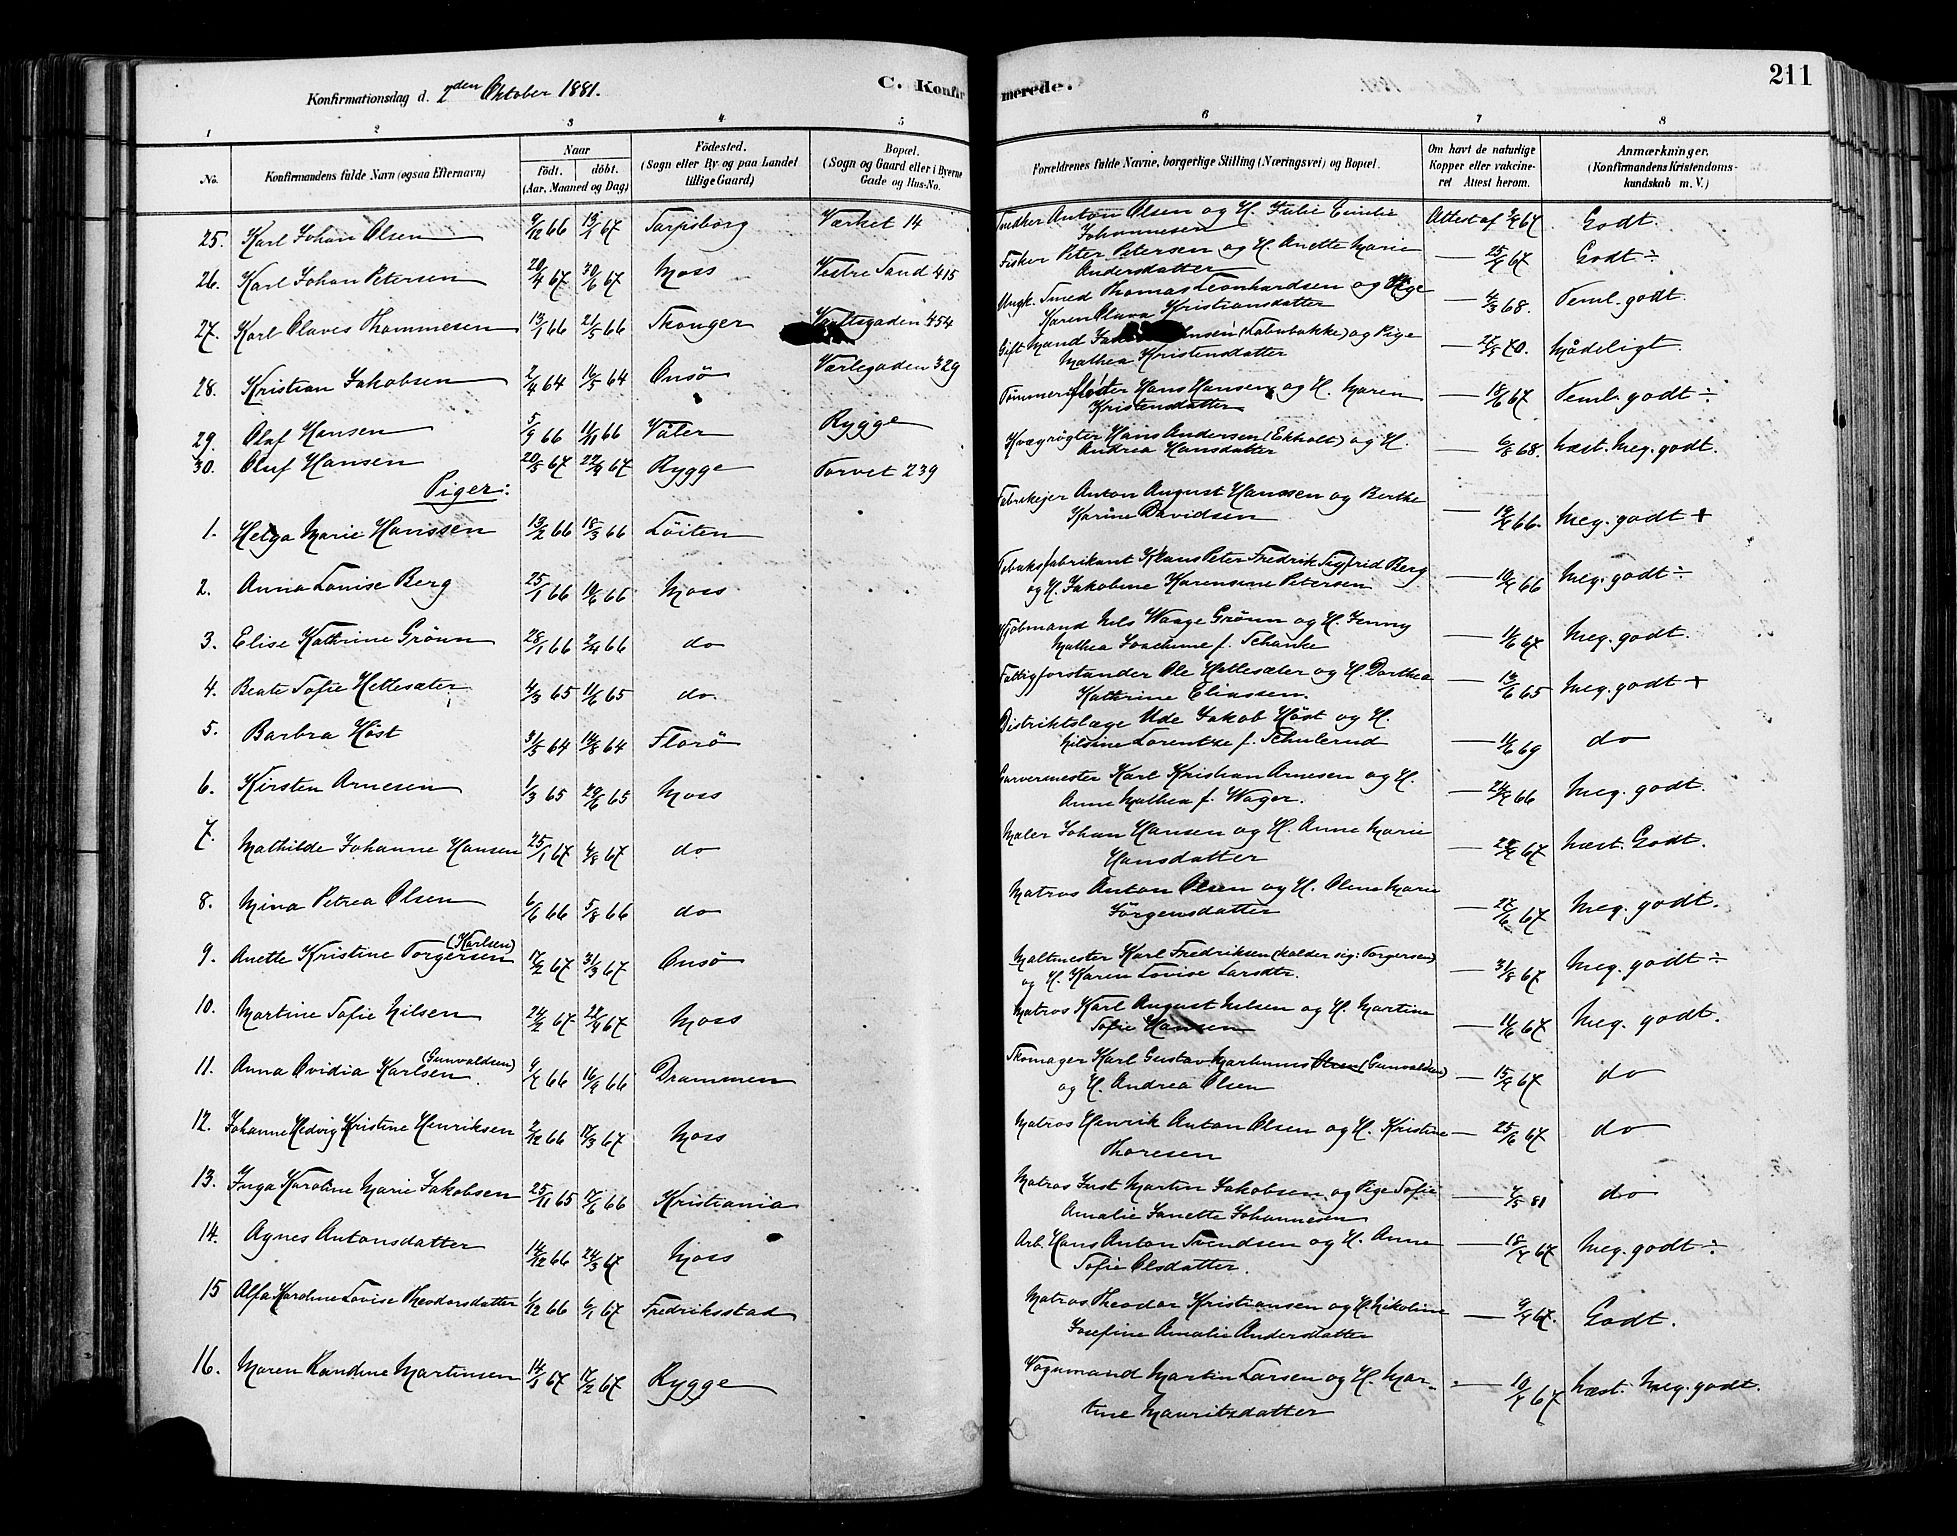 Konfirmationsdag d. 2den Oktober 1881.
C. Konfirmerede.
211
1 2 3 4 5 6 7 8
No.
Konfirmandens fulde Navn (ogsaa Efternavn)
Naar
födt. döbt.
(Aar, Maaned og Dag)
Födested.
(Sogn eller By og paa Landet
tillige Gaard)
Bopæl.
(Sogn og Gaard eller i Byerne
Gade og Hus-No.
Forældrenes fulde Navne, borgerlige Stilling (Næringsvei) og Bopæl.
Om havt de naturlige
Kopper eller vakcine-
ret Attest herom.
Anmærkninger.
(Konfirmandens Kristendoms-
kundskab m. V.)
25. Karl Johan Olsen 9/12 66 13/1 67 Sarpsborg Værket 14 Snedker Anton Olsen og H. Julie Emilie Attest af 67 Godt.
Johannesen
26. Karl Johan Petersen 20/4 67 30/6 67 Moss Vestre Sand 415 Fisker Peter Petersen og H. Anette Marie — 67 Godt ÷
Andersdatter
27. Karl Olaves Thommesen 13/1 66 21/5 66 Skonger 454 Ungk. Smed Thomas Leonhardsen og Pige — 4/3 68. Teml. godt.
Karen Olava Kristiansdatter
28. Kristian Jakobsen 2/4 64 16/5 64 Onsö Varlegaden 329 Gift Mand og Pige — 70. Mådeligt.
Mathea Kristensdatter
29. Olaf Hansen 5/9 66 11/11 66 Våler Rygge Tømmerfløter Hans Hansen og H. Maren — 18/6 67 Teml. godt ÷
Kristensdatter
30. Oluf Hansen 20/5 67 22/9 67 Rygge Torvet 239 Kvægrögter Hans Andersen (Ekholt) og H. — 6/8 68. Næst. Meg. godt.
Andrea Hansdatter
Piger:
1. Helga Marie Hanssen 13/2 66 18/3 66 Löiten Fabrikejer Anton August Hanssen og Berthe — 66. Meg. godt +
Karine Davidsen
2. Anna Louise Berg 25/1 66 10/6 66 Moss Tobaksfabrikant Klaus Peter Fredrik Sigfrid Berg — 66 Meg. godt ÷
og H. Jakobine Karensine Petersen
3. Elise Kathrine Grönn 28/1 66 2/4 66 do Kjöbmand Nils Waage Grönn og H. Jenny — 11/6 67 Meg. godt.
Mathea Joachime f. Schanke
4. Beate Sofie Hellesæter 4/3 65 11/6 65 do Fattigforstander Ole Hellesæter og H. Dorthea — 13/6 65 Meg. godt +
Kathrine Eliassen.
5. Barbra Höst 31/5 64 14/8 64 Florö Distriktslæge Ude Jakob Höst og H. — 11/6 69 do
Nilsine Lorentze f. Schulerud
6. Kirsten Arnesen 1/3 65 20/6 65 Moss Garvermester Karl Kristian Arnesen og H. — 66 Meg. godt.
Anne Mathea f. Wager.
7. Mathilde Johanne Hansen 25/1 67 4/8 67 do Maler Johan Hansen og H. Anne Marie — 67 Næst. Godt.
Hansdatter
8. Mina Petrea Olsen 6/6 66 5/8 66 do Matros Anton Olsen og H. Olene Marie — 27/6 67 Meg. godt.
Jörgensdatter
9. Anette Kristine Torgersen (Karlsen) 17/2 67 31/3 67 Onsö Maltmester Karl Fredriksen (kalder sig: Torgersen) — 31/8 67 Meg. godt ÷
og H. Karen Lovise Larsdtr.
10. Martine Sofie Nilsen 24/2 67 28/4 67 Moss Matros Karl August Nilsen og H. Martine — 11/6 67 Meg. godt.
Sofie Hansen
11. Anna Ovidia Karlsen (Gunvaldsen) 66 16/9 66 Drammen Skomager Karl Gustav Markunus Olsen (Gunvaldsen) — 67 do
og H. Andrea Olsen
12. Johanne Hedvig Kristine Henriksen 2/12 66 17/3 67 Moss Matros Henrik Anton Olsen og H. Kristine — 25/6 67 do
Thoresen
13. Inga Karoline Marie Jakobsen 25/11 65 17/6 66 Kristiania Matros Just Martin Jakobsen og Pige Sofie — 81 do
Amalie Janette Johannesen
14. Agnes Antonsdatter 14/12 66 24/3 67 Moss Arb. Hans Anton Svendsen og H. Anne — 67 Meg. godt ÷
Sofie Olsdatter.
15 Alfa Karoline Lovise Theodorsdatter 6/12 66 6/1 67 Fredriksstad Matros Theodor Kristiansen og H. Nikoline — 67. Godt.
Josefine Amalie Andersdatter
16. Maren Randine Martinsen 14/1 67 17/2 67 Rygge Vognmand Martin Larsen og H. Mar- — 67 Næst. Meg. godt.
tine Mauritzdatter